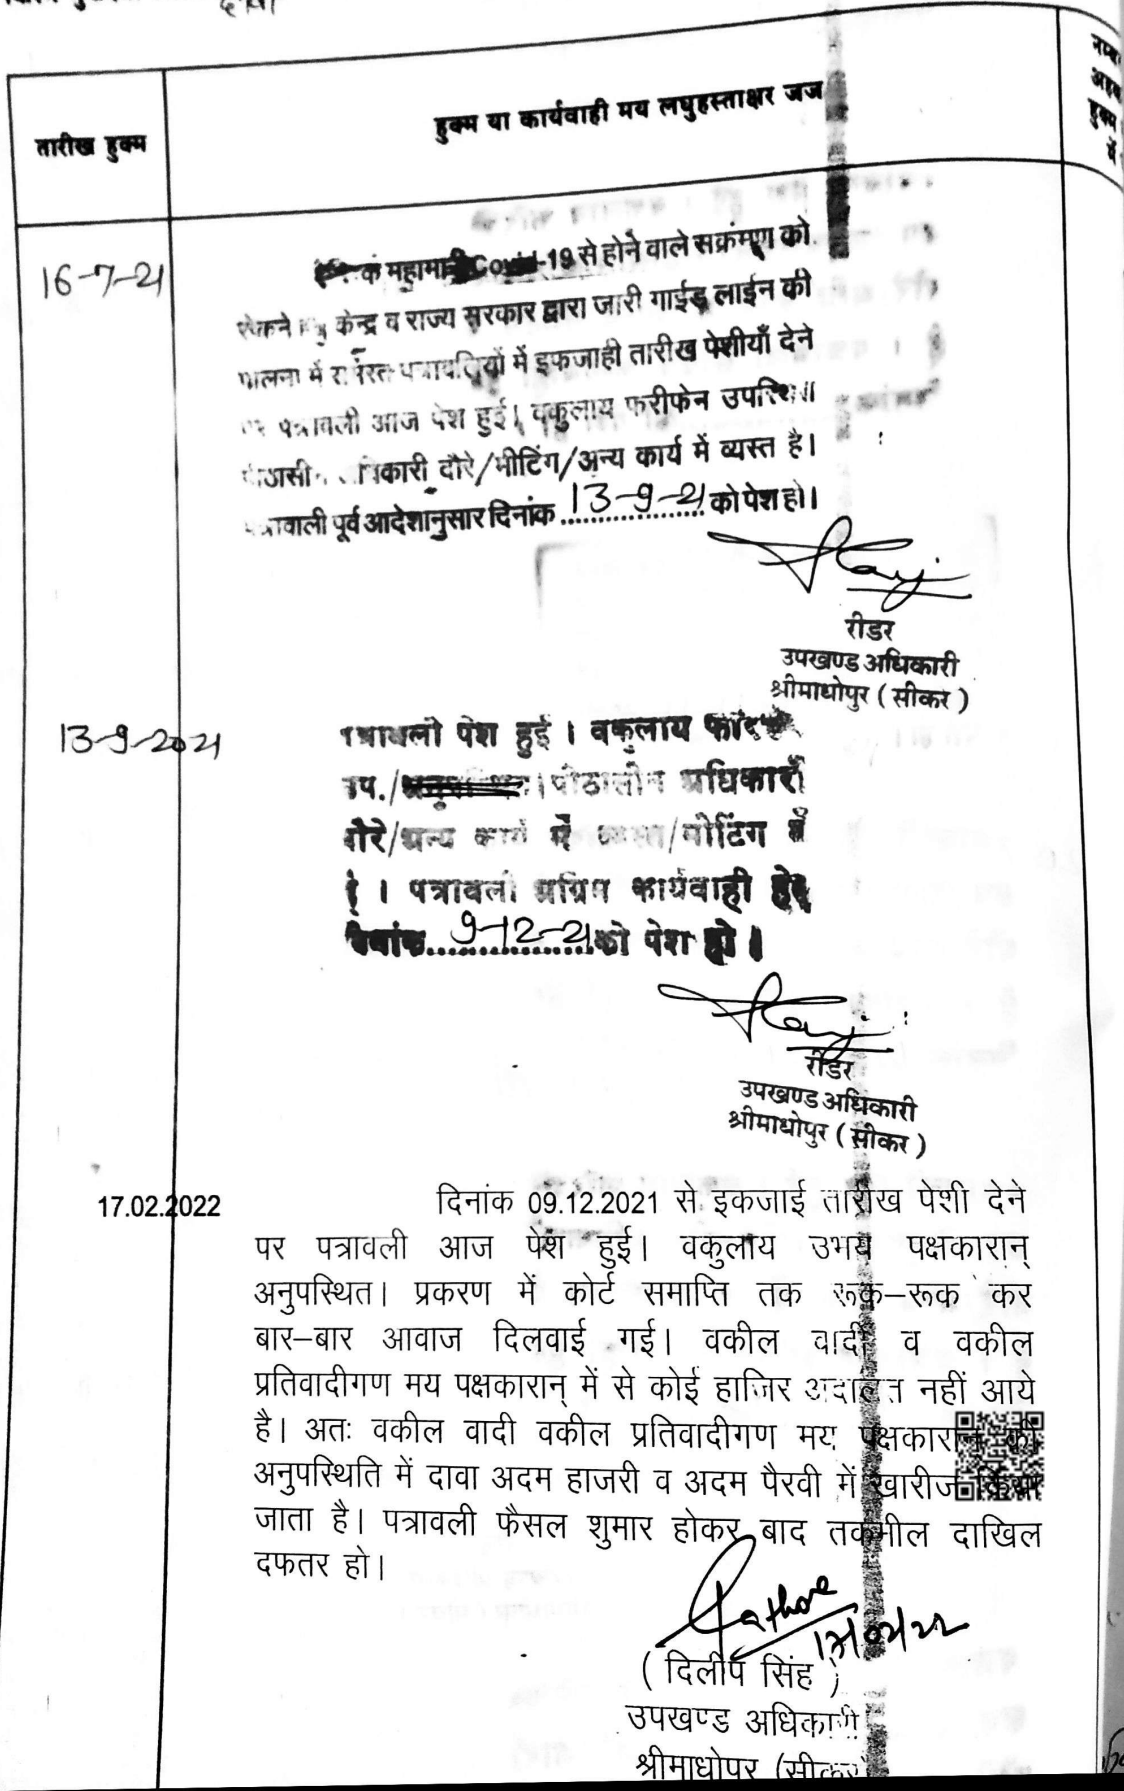 तारीख हुक्म
हुक्म या कार्यवाही मय लघुहस्ताक्षर जज
नम्ब
अहव
हुक्म
में
16-7-21
महामारी Covid-19 से होने वाले सक्रंमण को
रोकने केन्द्र व राज्य सरकार द्वारा जारी गाईड लाईन की
पालना में समस्त पत्रावलियों में इफजाही तारीख पेशीयाँ देने
पर पत्रावली आज पेश हुई। वकुलाय फरीफेन उपस्थित।
अधिकारी दौरे/मीटिंग/अन्य कार्य में व्यस्त है।
पत्रावाली पूर्व आदेशानुसार दिनांक 13-9-21 को पेश हो।
रीडर
उपखण्ड अधिकारी
श्रीमाधोपुर ( सीकर )
13-9-2021
पत्रावली पेश हुई । वकुलाय
उप./ । पीठासीन अधिकारी
दौरे/अन्य कार्य में व्यस्त/मीटिंग में
है । पत्रावली अग्रिम कार्यवाही हेतु
दिनांक 9-12-21 को पेश हो ।
रीडर
उपखण्ड अधिकारी
श्रीमाधोपुर ( सीकर )
17.02.2022
दिनांक 09.12.2021 से इकजाई तारीख पेशी देने
पर पत्रावली आज पेश हुई। वकुलाय उभय पक्षकारान्
अनुपस्थित। प्रकरण में कोर्ट समाप्ति तक रूक–रूक कर
बार–बार आवाज दिलवाई गई। वकील वादी व वकील
प्रतिवादीगण मय पक्षकारान् में से कोई हाजिर अदालत नहीं आये
है। अतः वकील वादी वकील प्रतिवादीगण मय पक्षकारान की
अनुपस्थिति में दावा अदम हाजरी व अदम पैरवी में खारीज किया
जाता है। पत्रावली फैसल शुमार होकर बाद तकमील दाखिल
दफतर हो।
Rathore
17/02/22
( दिलीप सिंह )
उपखण्ड अधिकारी
श्रीमाधोपुर (सीकर)